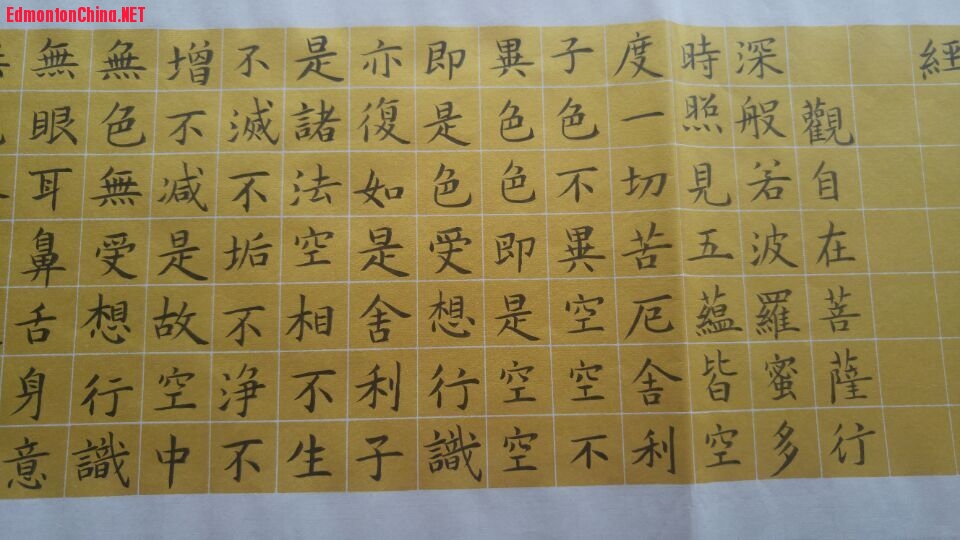 EdmontonChina.NET
經
觀自在菩薩行
深般若波羅蜜多
時照見五蘊皆空
度一切苦厄舍利
子色不異空空不
異色色即是空空
即是色受想行識
亦復如是舍利子
是諸法空相不生
不滅不垢不淨不
增不减是故空中
無色無受想行識
無眼耳鼻舌身意